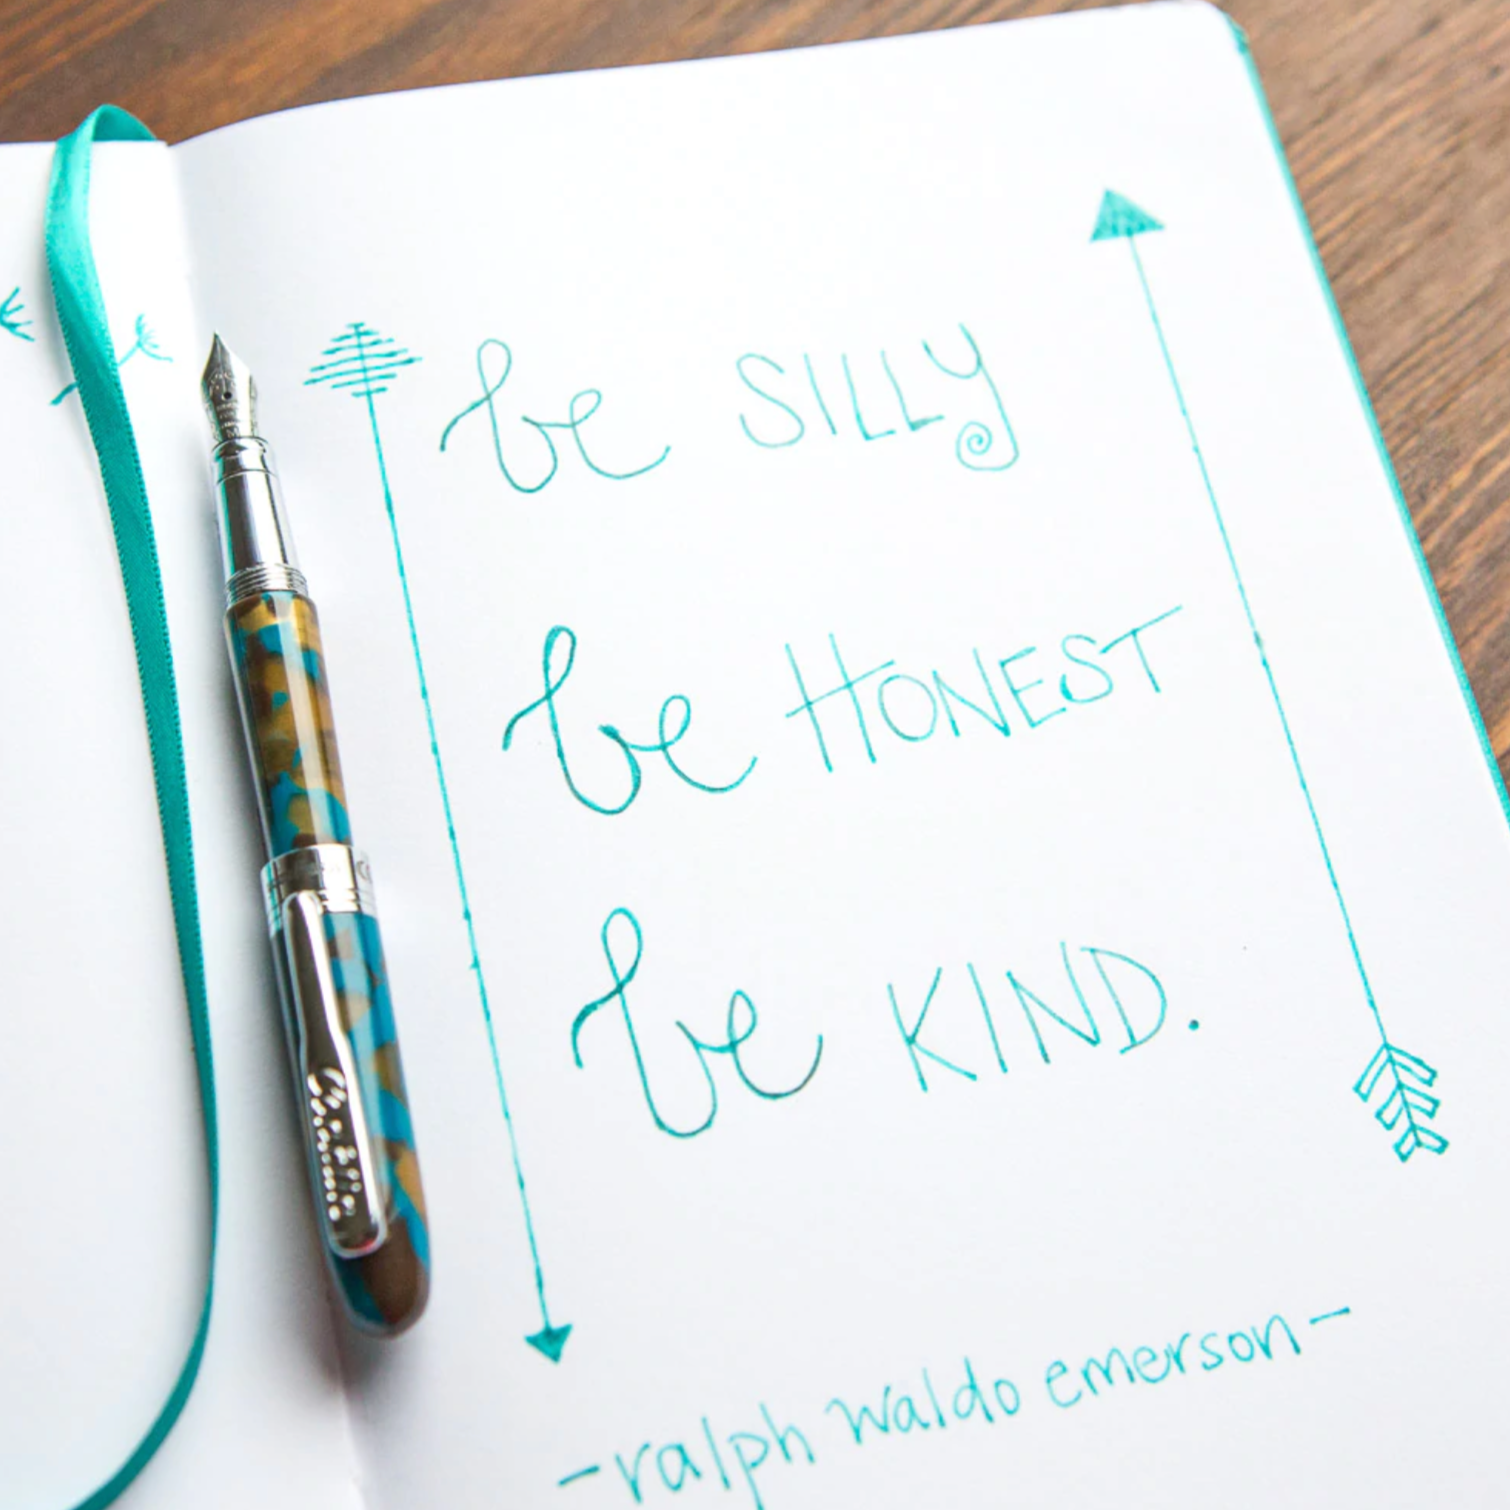 be SILLY
be HONEST
be KIND.
-ralph waldo emerson-